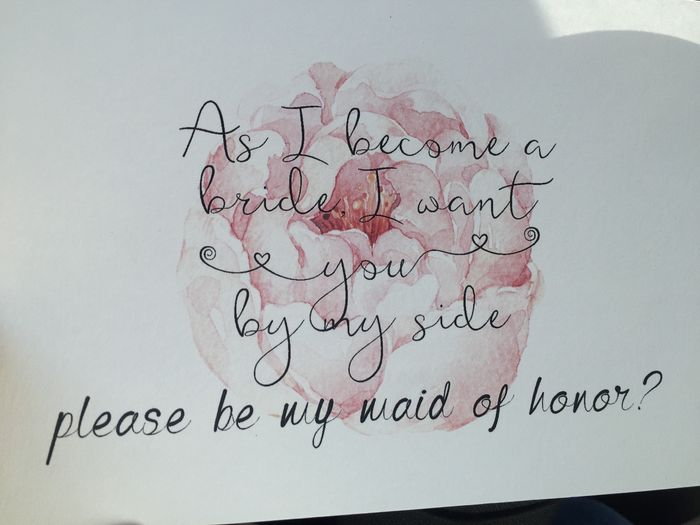 As I become a
bride, I want
you
by my side
please be my maid of honor?